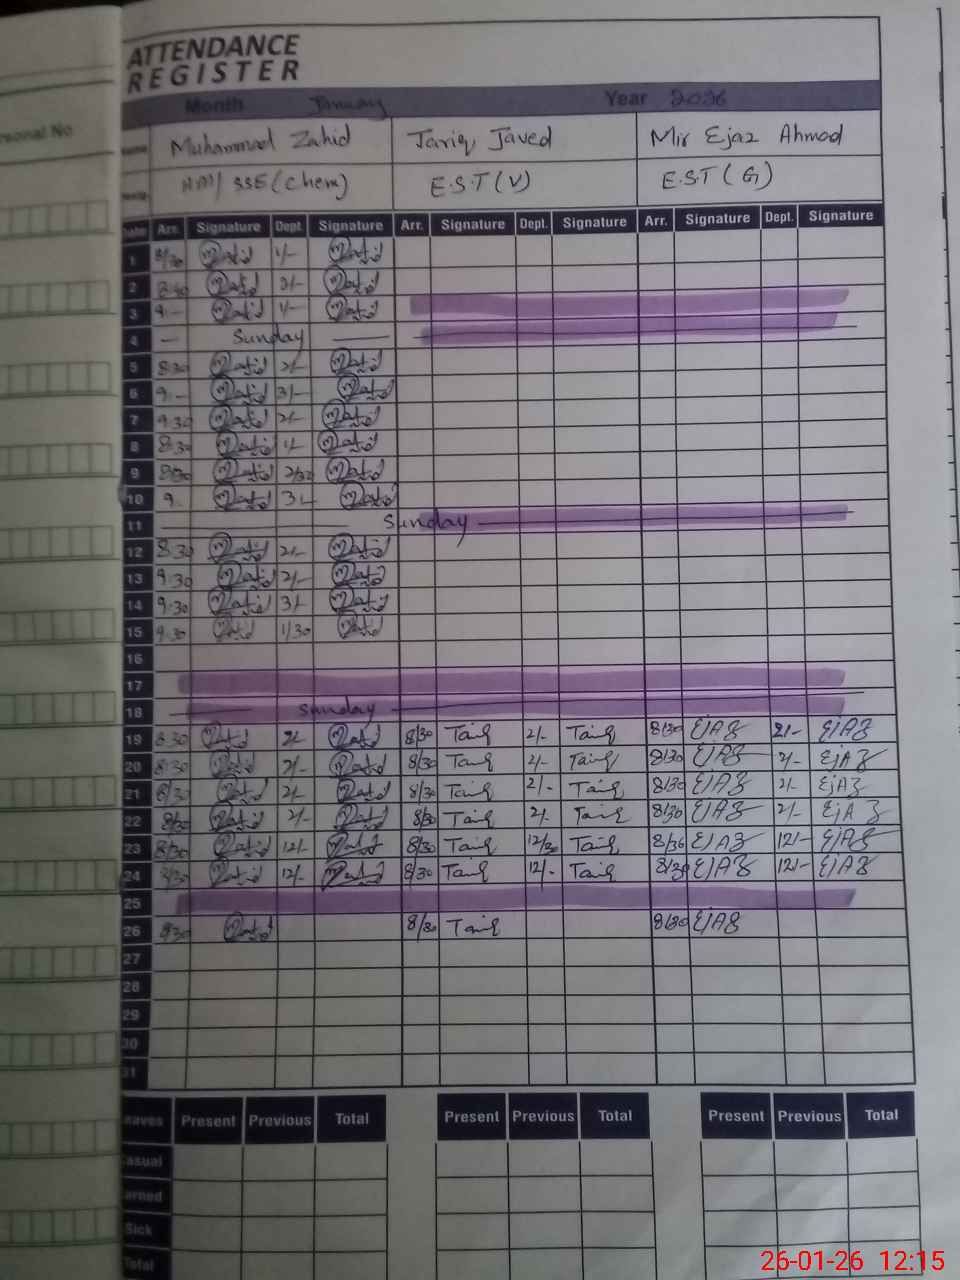 rsonal No
ATTENDANCE
REGISTER
Month January Year 2026
Name Muhammad Zahid Tariq Javed Mir Ejaz Ahmad
HM/ SSE (Chem) E.S.T (V) E.S.T (G)
Date Arr. Signature Dept. Signature Arr. Signature Dept. Signature Arr. Signature Dept. Signature
1 8/30 1/-
2 8:30 3/-
3 9 - 1/-
4 — Sunday —
5 8:30 2/-
6 9 - 3/-
7 9.30 2/-
8 8:30 1/-
9 8:30 2/30
10 9. 3/-
11 Sunday
12 8.30 2/-
13 9.30 2/-
14 9.30 3/-
15 9.30 1/30
16
17
18 Sunday
19 8.30 2/- 8/30 Tariq 2/- Tariq 8/30 EjAz 2/- EjAz
20 8:30 2/- 8/30 Tariq 2/- Tariq 8/30 EjAz 2/- EjAz
21 8/30 2/- 8/30 Tariq 2/- Tariq 8/30 EjAz 2/- EjAz
22 8/30 2/- 8/30 Tariq 2/- Tariq 8/30 EjAz 2/- EjAz
23 8/30 12/- 8/30 Tariq 12/30 Tariq 8/30 EjAz 12/- EjAz
24 8/30 12/- 8/30 Tariq 12/- Tariq 8/30 EjAz 12/- EjAz
25
26 8:30 8/30 Tariq 8/30 EjAz
27
28
29
30
31
eaves Present Previous Total Present Previous Total Present Previous Total
Casual
arned
Sick
Total
26-01-26 12:15